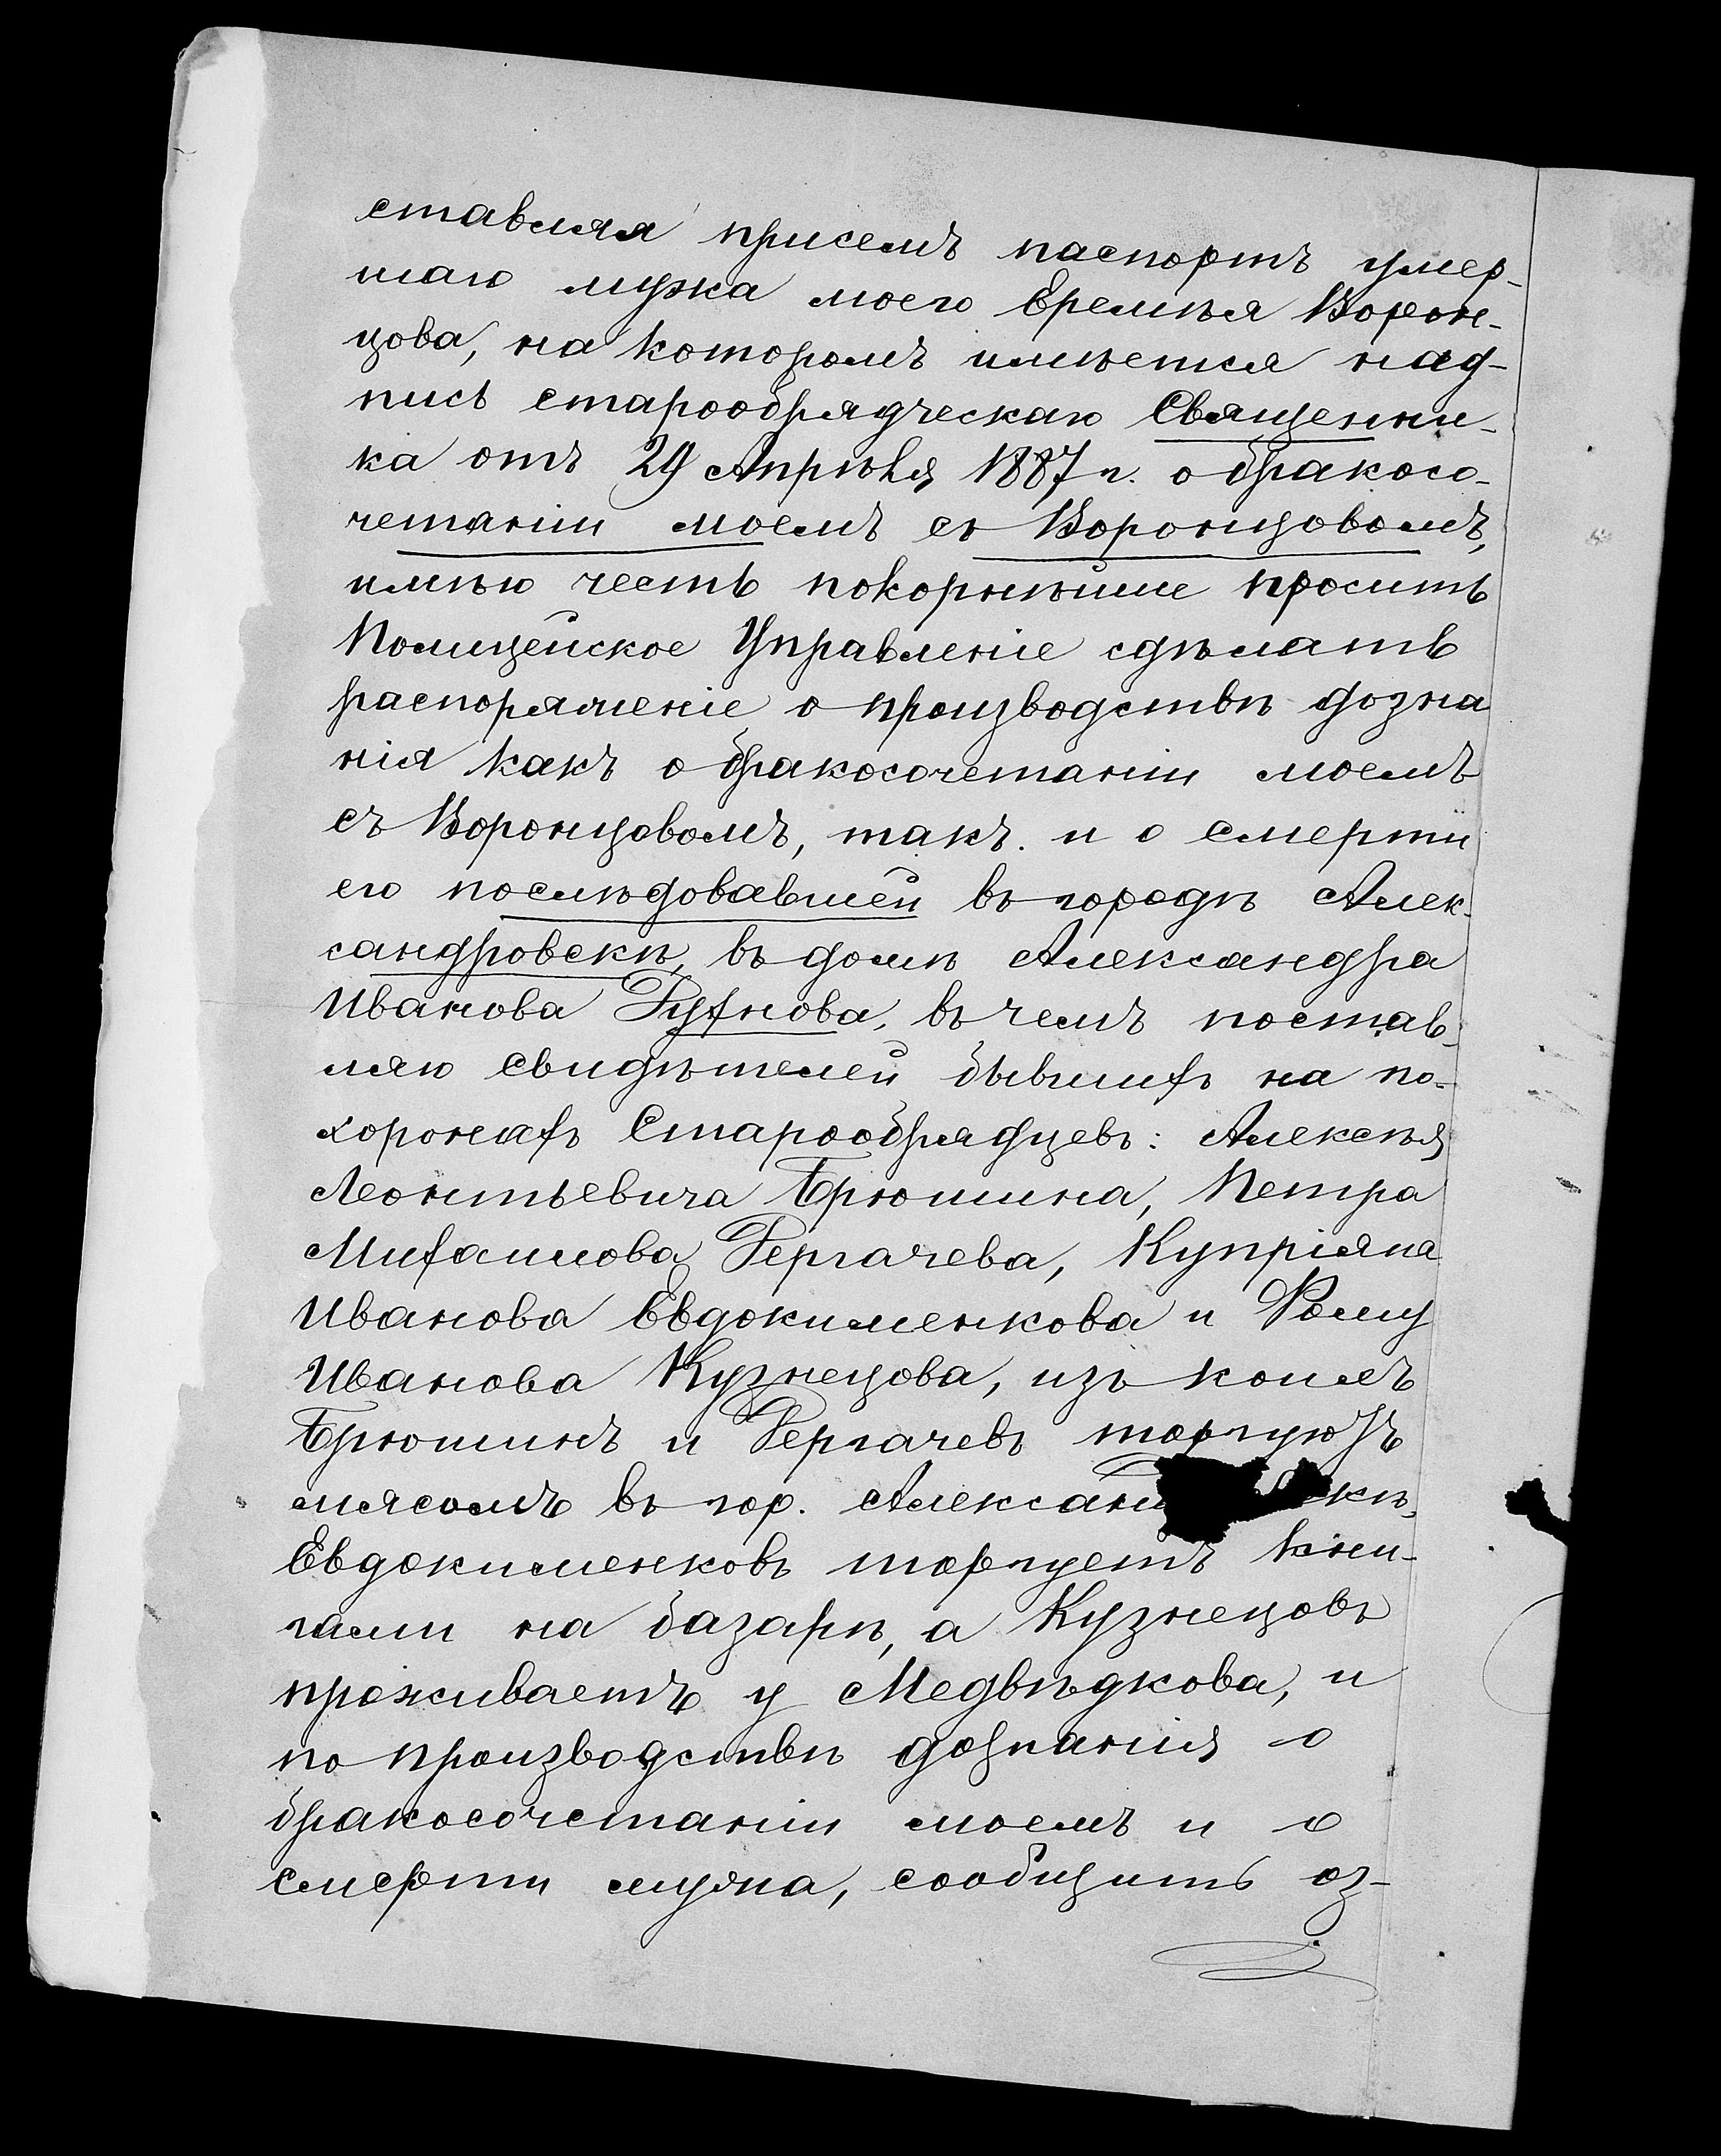 ставляя присемъ паспортъ умер-
шаго мужа моего Еремѣя Ворон-
цова, на которомъ имѣется над-
пись старообрядческаго Священни-
ка отъ 29 Апрѣля 1887 г. о бракосо-
четаніи моемъ съ Воронцовомъ,
имѣю честь покорнѣише просить
Полицейское Управленіе сдѣлать
распоряженіе о производствѣ дозна
нія какъ о бракосочетаніи моемъ
съ Воронцовомъ, такъ и о смерти
его послѣдовавшей въ городѣ Алек-
сандровскѣ, въ домѣ Александра
Иванова Гухнова, въ чемъ постав-
ляю свидѣтелей бывшихъ на по-
хоронахъ Старообрядцевъ: Алексѣя
Леонтьевича Брюшина, Петра
Михаилова Гергачева, Купріяна
Иванова Евдокименкова и Фому
Иванова Кузнецова, изъ коихъ
Брюшинъ и Гергачевъ торгуютъ
мясомъ въ гор. Алексан скѣ,
Евдокименковъ торгуетъ кни-
гами на базарѣ, а Кузнецовъ
проживаетъ у Медвѣдкова, и
по производствѣ дознанія о
бракосочетаніи моемъ и о
смерти мужа, сообщить оз-